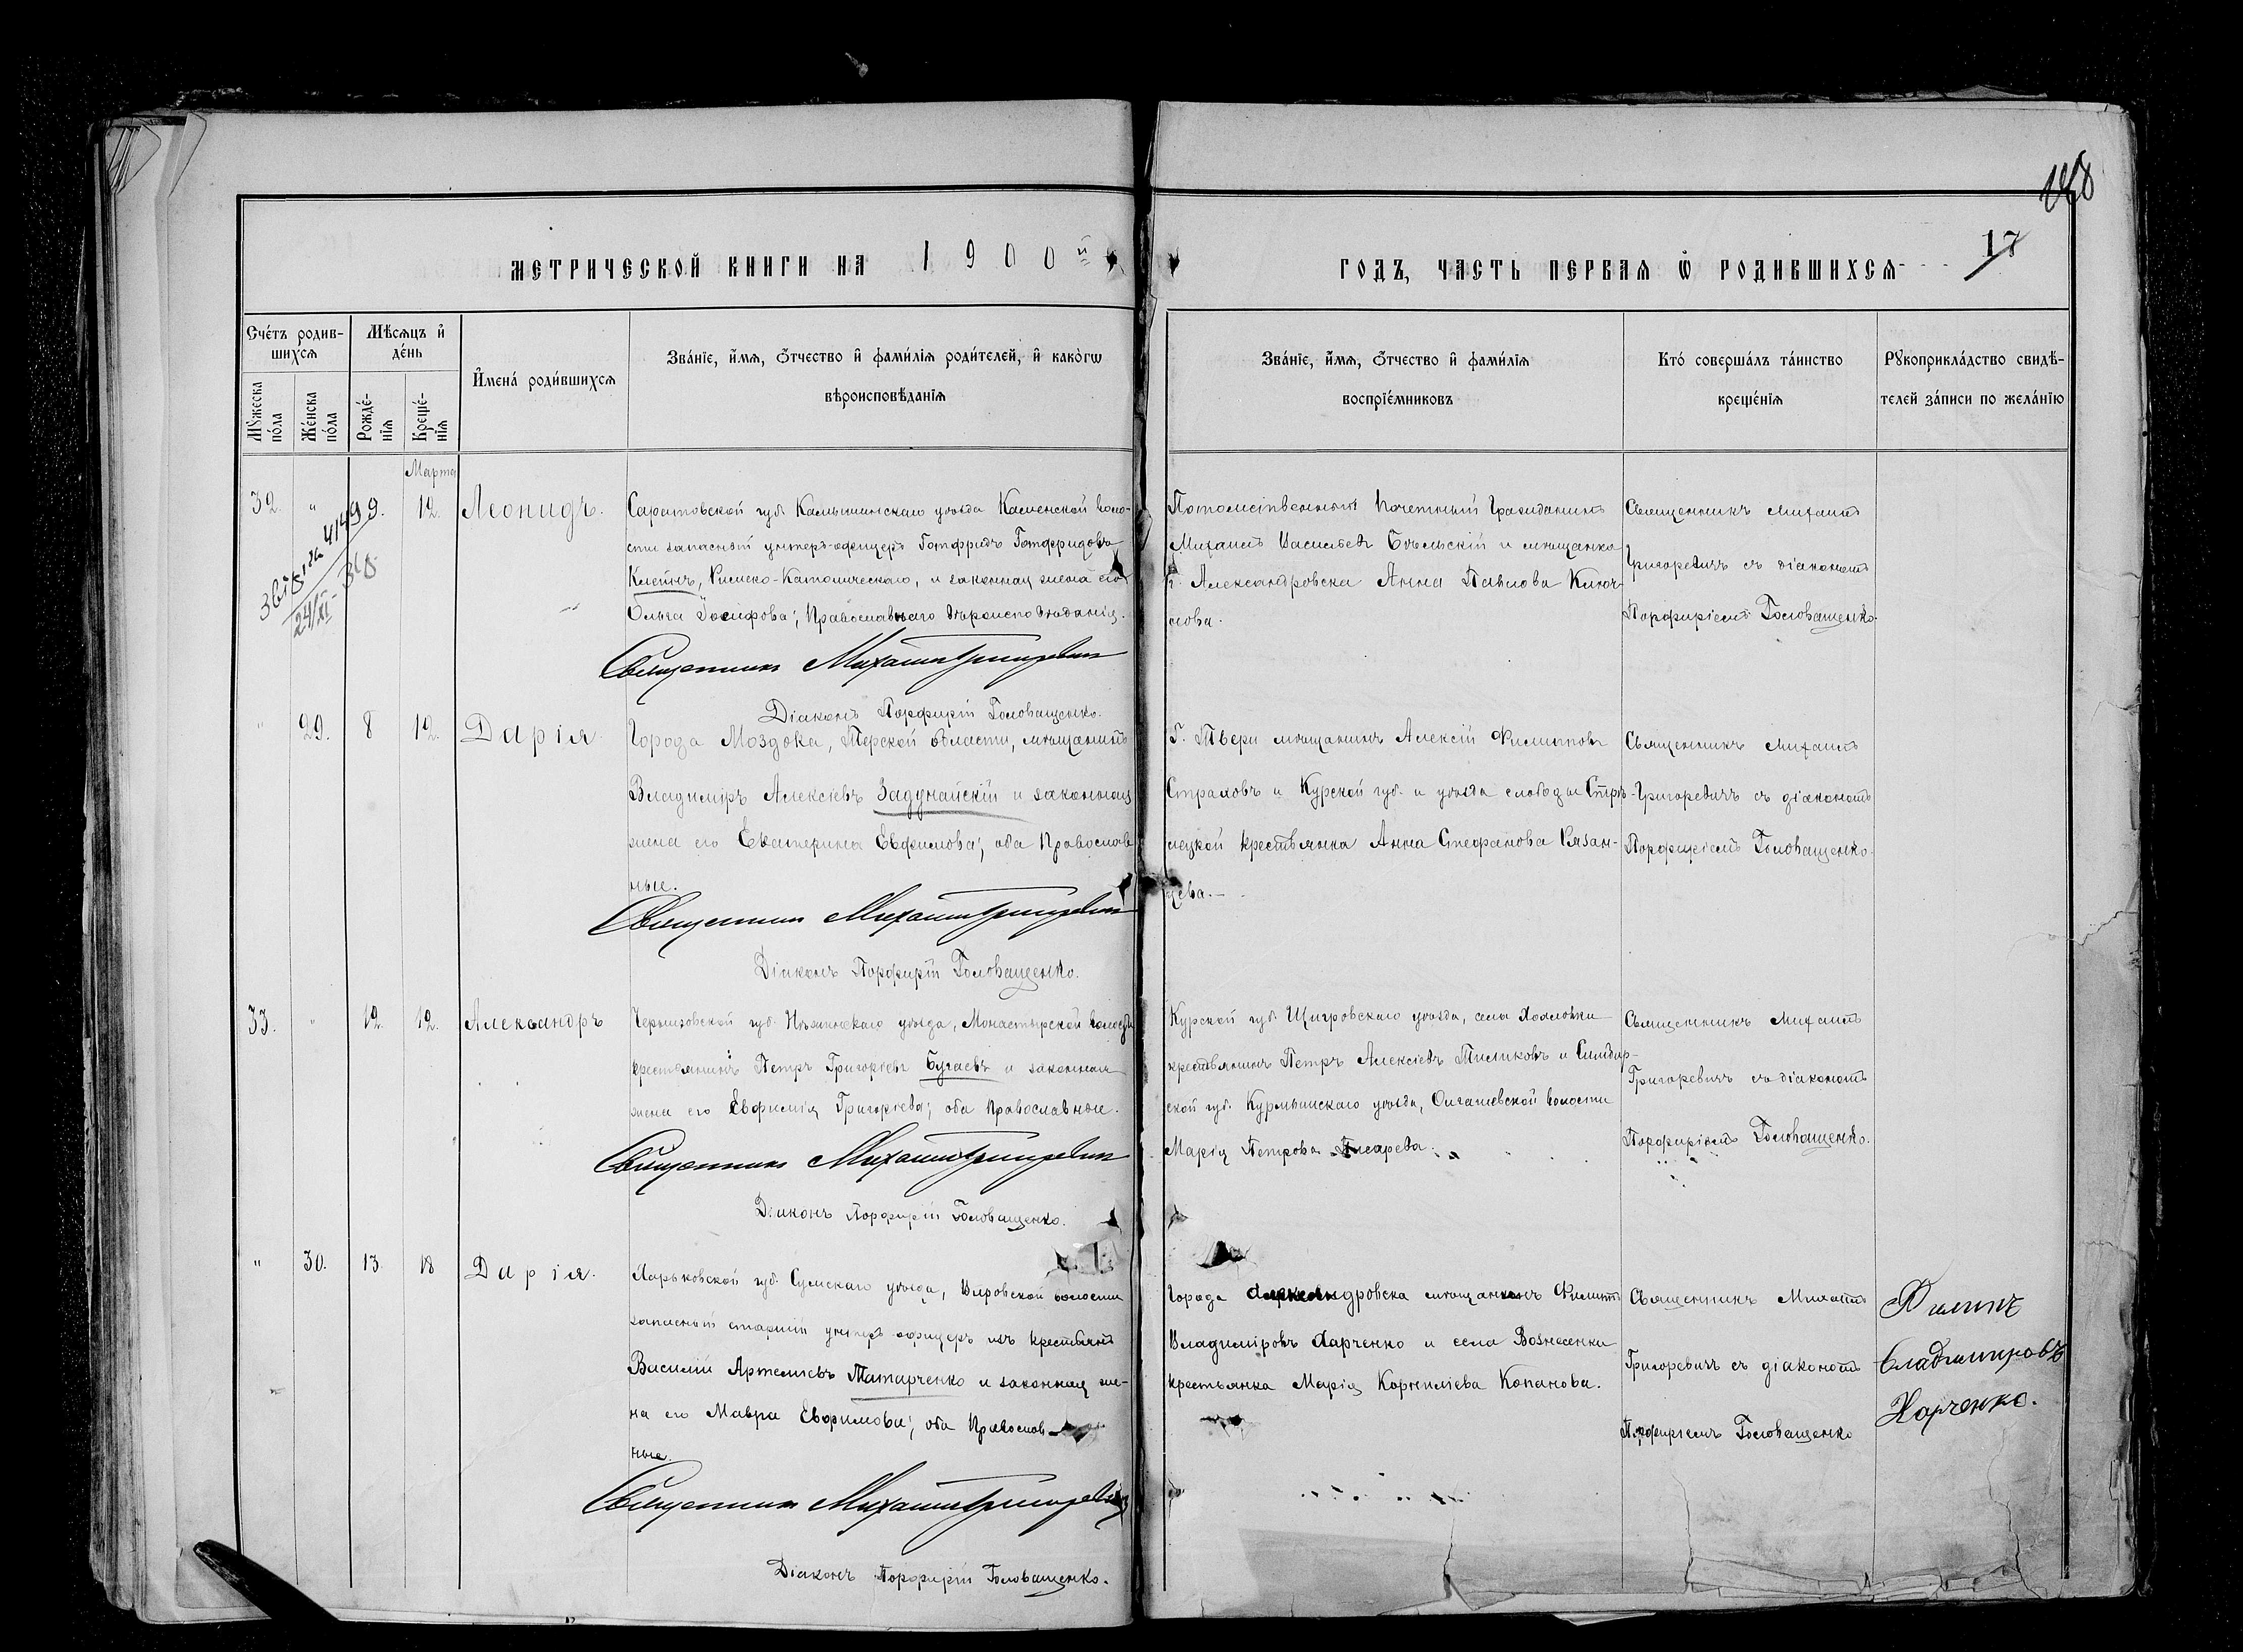 МЕТРИЧЕСКОЙ КНИГИ НА 1900й
ГОДЪ, ЧАСТЬ ПЕРВАЯ Ѡ РОДИВШИХСЯ
17
Счетъ родив-
шихся
Мѣсяцъ и
день
Мужеска
пола
Женска
пола
Рожде-
нія
Креще-
нія
Имена родившихся
Званіе, имя, отчество и фамилія родителей, и какогѡ
вѣроисповѣданія
Званіе, имя, отчество и фамилія
воспріемниковъ
Кто совершалъ таинство
крещенія
Рукоприкладство свидѣ-
телей записи по желанію
Марта
32. " 9. 12. Леонидъ.
Саратовской губ. Камышинскаго уѣзда Каменской воло-
сти запасный унтеръ-офицеръ Готфридъ Готфридовъ
Клейнъ, Римско-Католическаго, и законная жена его
Ольга Іосифова; Православнаго вѣроисповѣданія.
Священникъ Михаилъ Григоревичъ
Діаконъ Порфирій Головащенко.
Потомственный Почетный Гражданинъ
Михаилъ Васильевъ Бѣльскій и мѣщанка
г. Александровска Анна Павлова Ключ-
Священникъ Михаилъ
Григоревичъ съ діакономъ
Порфиріемъ Головащенко.
" 29. 8 12. Дарія
Города Моздока, Терской области, мѣщанинъ
Владиміръ Алексіевъ Задунайскій и законная
жена его Екатерина Евфимова; оба Православ
ные.
Священникъ Михаилъ Григоревичъ
Діаконъ Порфирій Головащенко.
Г. Твери мѣщанинъ Алексій Филиповъ
Страховъ и Курской губ. и уѣзда слободы Стрѣ-
лецкой крестьянка Анна Стефанова Рязан-
цева.
Священникъ Михаилъ
Григоревичъ съ діакономъ
Порфиріемъ Головащенко.
33. " 12. 12. Александръ
Черниговской губ. Нѣжинскаго уѣзда, Монастырской волости
крестьянинъ Петръ Григоріевъ Бугаевъ и законная
жена его Евфимія Григоріева; оба Православные.
Священникъ Михаилъ Григоревичъ
Діаконъ Порфирій Головащенко.
Курской губ. Щигровскаго уѣзда, села
крестьянинъ Петръ Алексіевъ и Симбир-
ской губ. Курмышскаго уѣзда, волости
Марія Петрова Писарева.
Священникъ Михаилъ
Григоревичъ съ діакономъ
Порфиріемъ Головащенко.
" 30. 13 18 Дарія.
Харьковской губ. Сумскаго уѣзда, Вировской волости
запасный старшій унтеръ-офицеръ изъ крестьянъ
Василій Артеміевъ Татарченко и законная же-
на его Мавра Евфимова; оба Православ-
ные.
Священникъ Михаилъ Григоревичъ
Діаконъ Порфирій Головащенко.
Города Александровска мѣщанинъ Филиппъ
Владиміровъ Харченко и села Вознесенки
крестьянка Марія Корниліева Копанова.
Священникъ Михаилъ
Григоревичъ съ діакономъ
Порфиріемъ Головащенко
Филипъ
Владимировъ
Харченко.